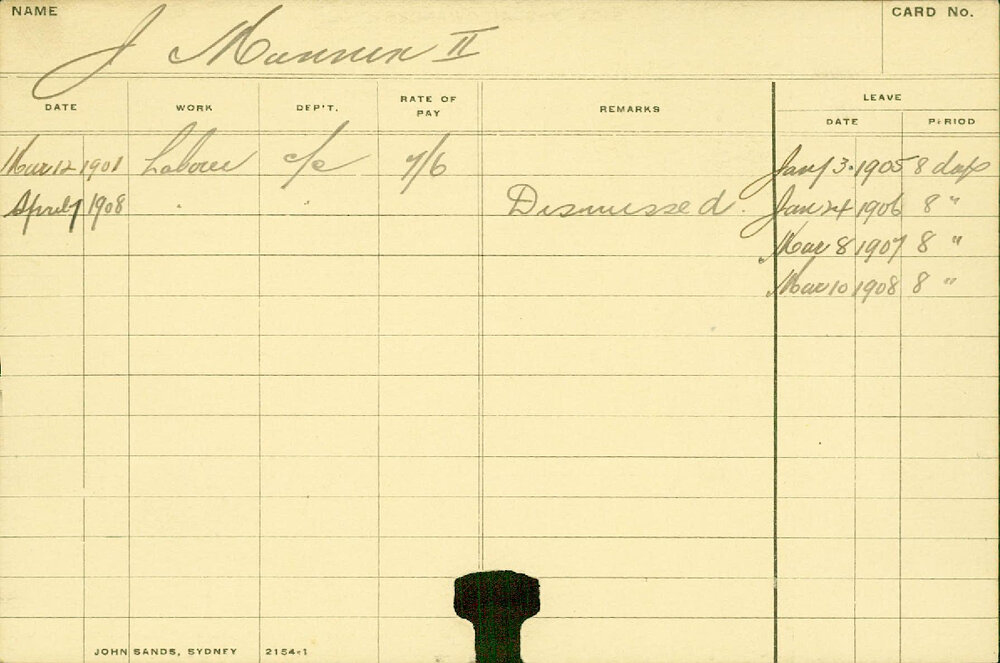 NAME
CARD No.
J Mannen II
DATE WORK DEP'T. RATE OF PAY REMARKS LEAVE
DATE PERIOD
Mar 12 1901 Labour c/e 7/6 Jany 3. 1905 8 days
April 7 1908 Dismissed. Jan 24 1906 8 "
Mar 8 1907 8 "
Mar 10 1908 8 "
JOHN SANDS, SYDNEY 2154-1